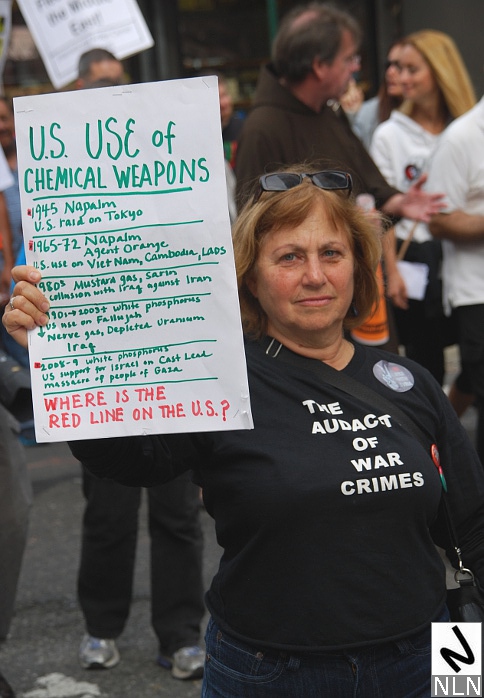 U.S. USE of
CHEMICAL WEAPONS
1945 Napalm
U.S. raid on Tokyo
1965-72 Napalm
Agent Orange
U.S. use on Viet Nam, Cambodia, LAOS
1980s Mustard gas, Sarin
collusion with Iraq against Iran
2003+ white phosphorus
US use on Fallujah
Nerve gas, Depleted Uranium
Iraq
2008-9 white phosphorus
US support for Israel on Cast Lead
massacre of people of Gaza
WHERE IS THE
RED LINE ON THE U.S.?
THE
AUDACT
OF
WAR
CRIMES
NLN